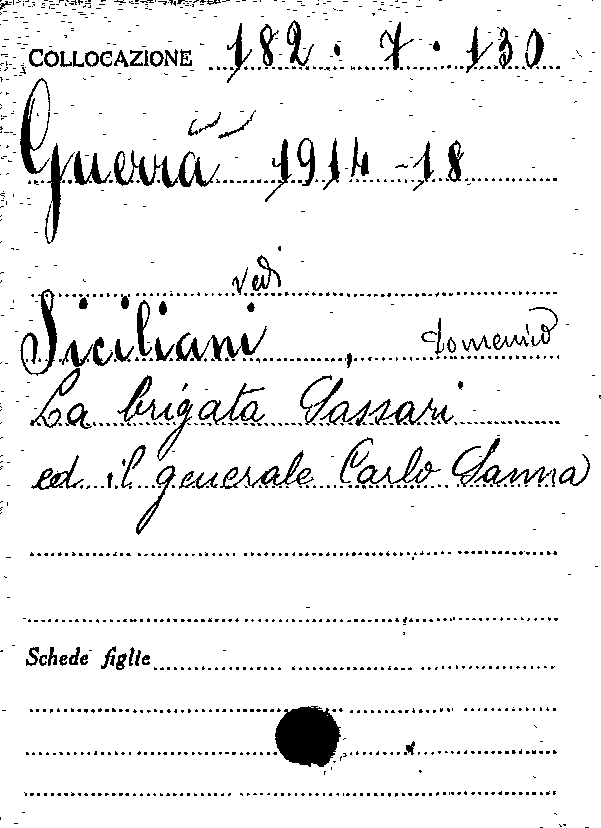 COLLOCAZIONE 182.7.130
Guerra 1914-18
vedi
Siciliani, Domenico
La brigata Sassari
ed il generale Carlo Sanna
Schede figlie